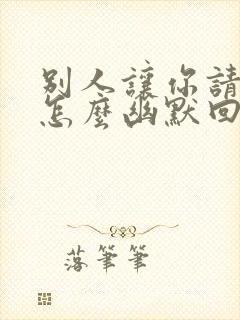 別人讓你請
怎麼幽默回
落筆筆